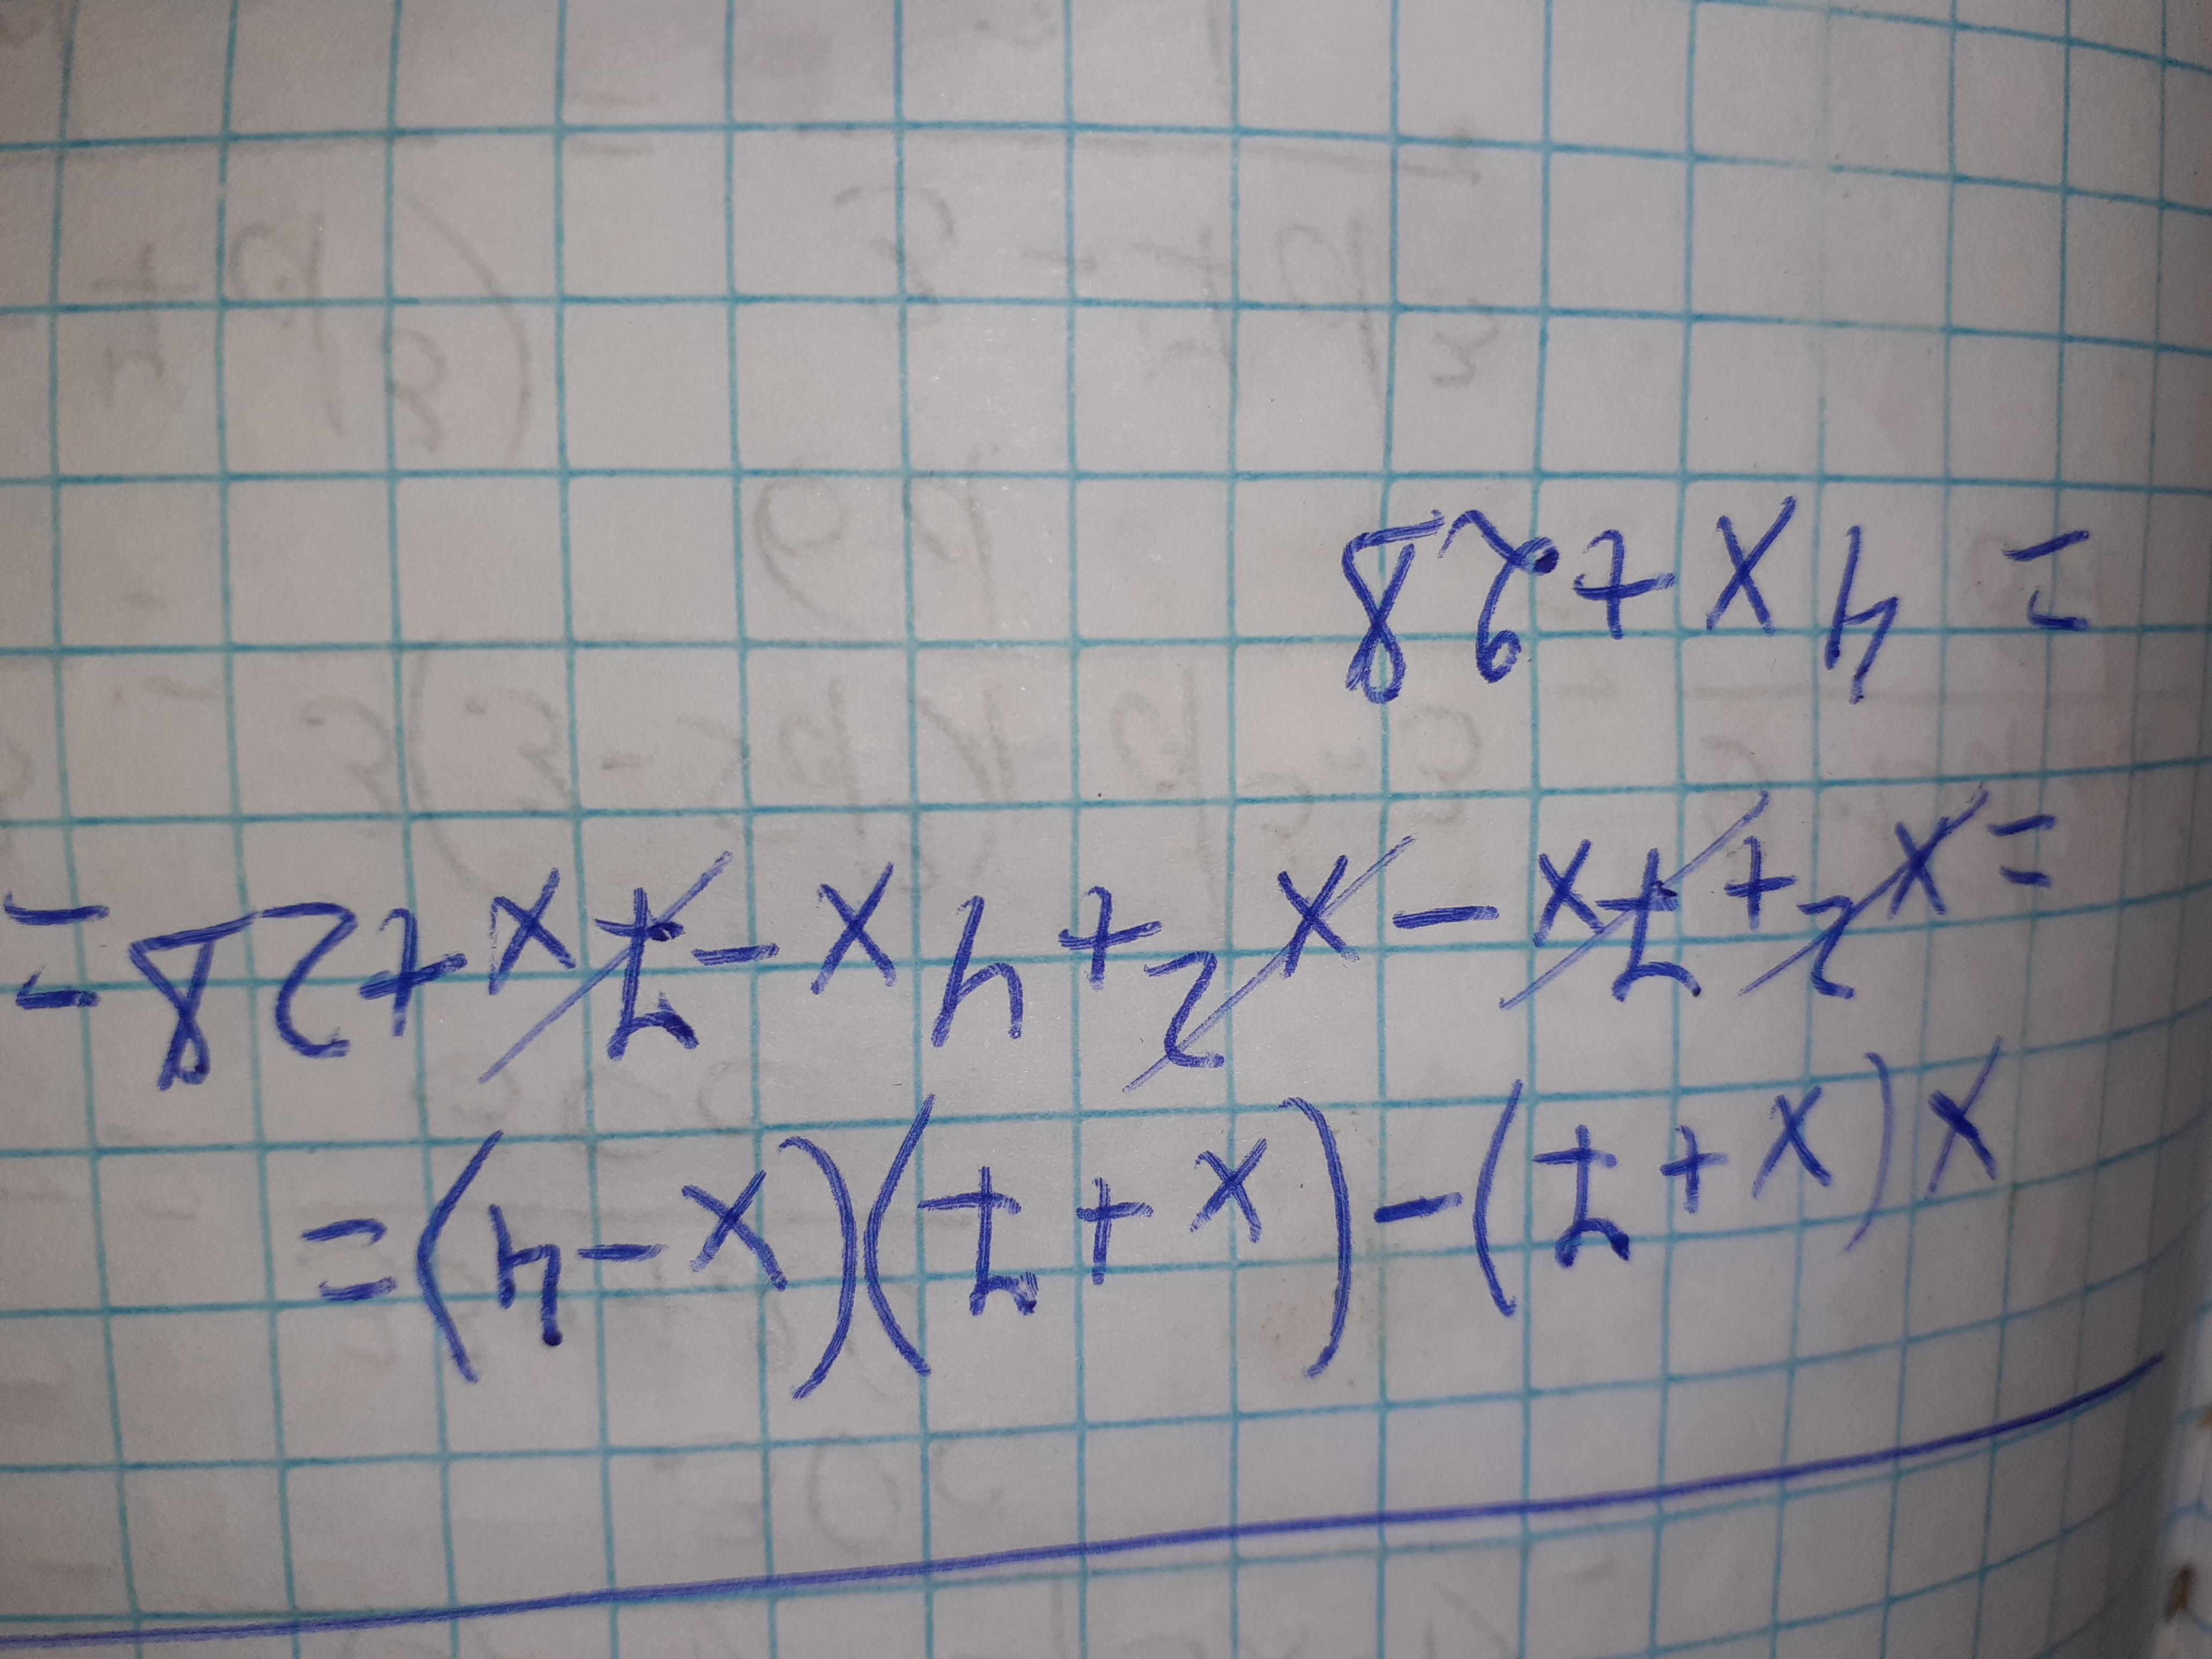 x(x+7)-(x+7)(x-4)=
=x²+7x-x²+4x-7x+28=
=4x+28